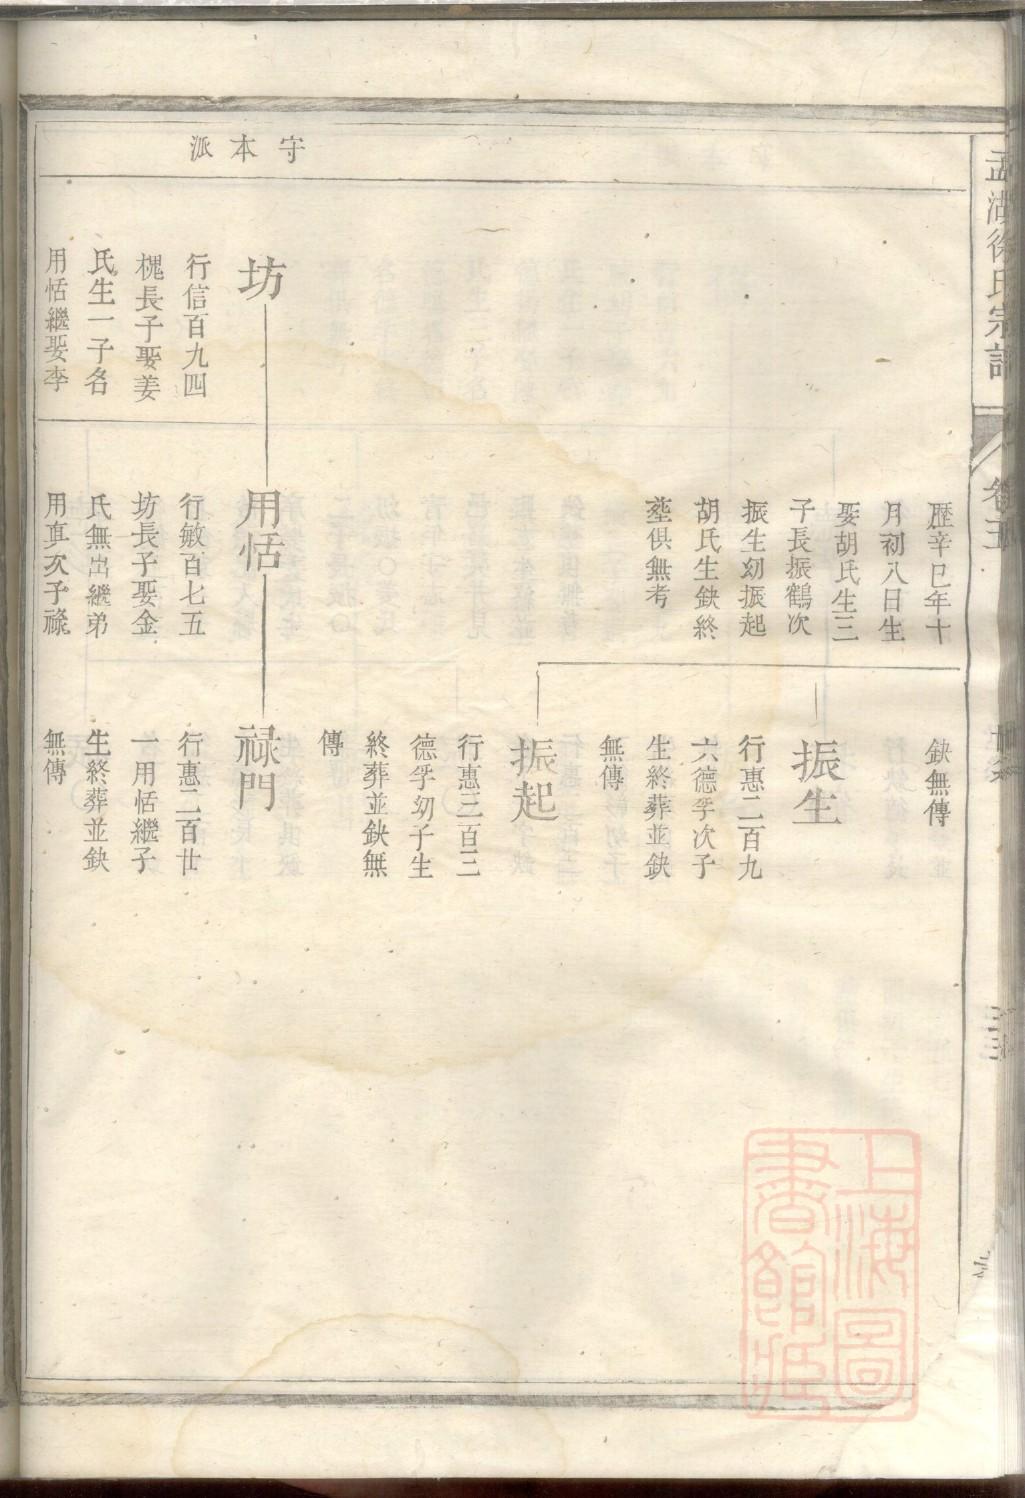 孟湖徐氏宗譜
卷五
守本派
歷辛巳年十
月初八日生
娶胡氏生三
子長振鶴次
振生幼振起
胡氏生缺終
塟俱無考
缺無傳
振生
行惠二百九
六德孚次子
生終葬並缺
無傳
振起
行惠三百三
德孚幼子生
終葬並缺無
傳
坊
行信百九四
槐長子娶姜
氏生一子名
用恬繼娶李
用恬
行敏百七五
坊長子娶金
氏無出繼弟
用真次子祿
祿門
行惠二百廿
一用恬繼子
生終葬並缺
無傳
上海圖
書館藏